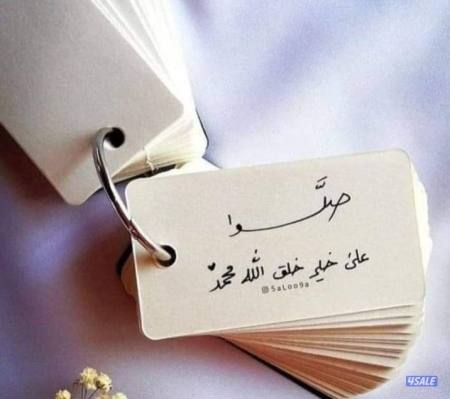 صلَّوا
على خير خلق الله محمد ♥
5aLoo9a
4SALE